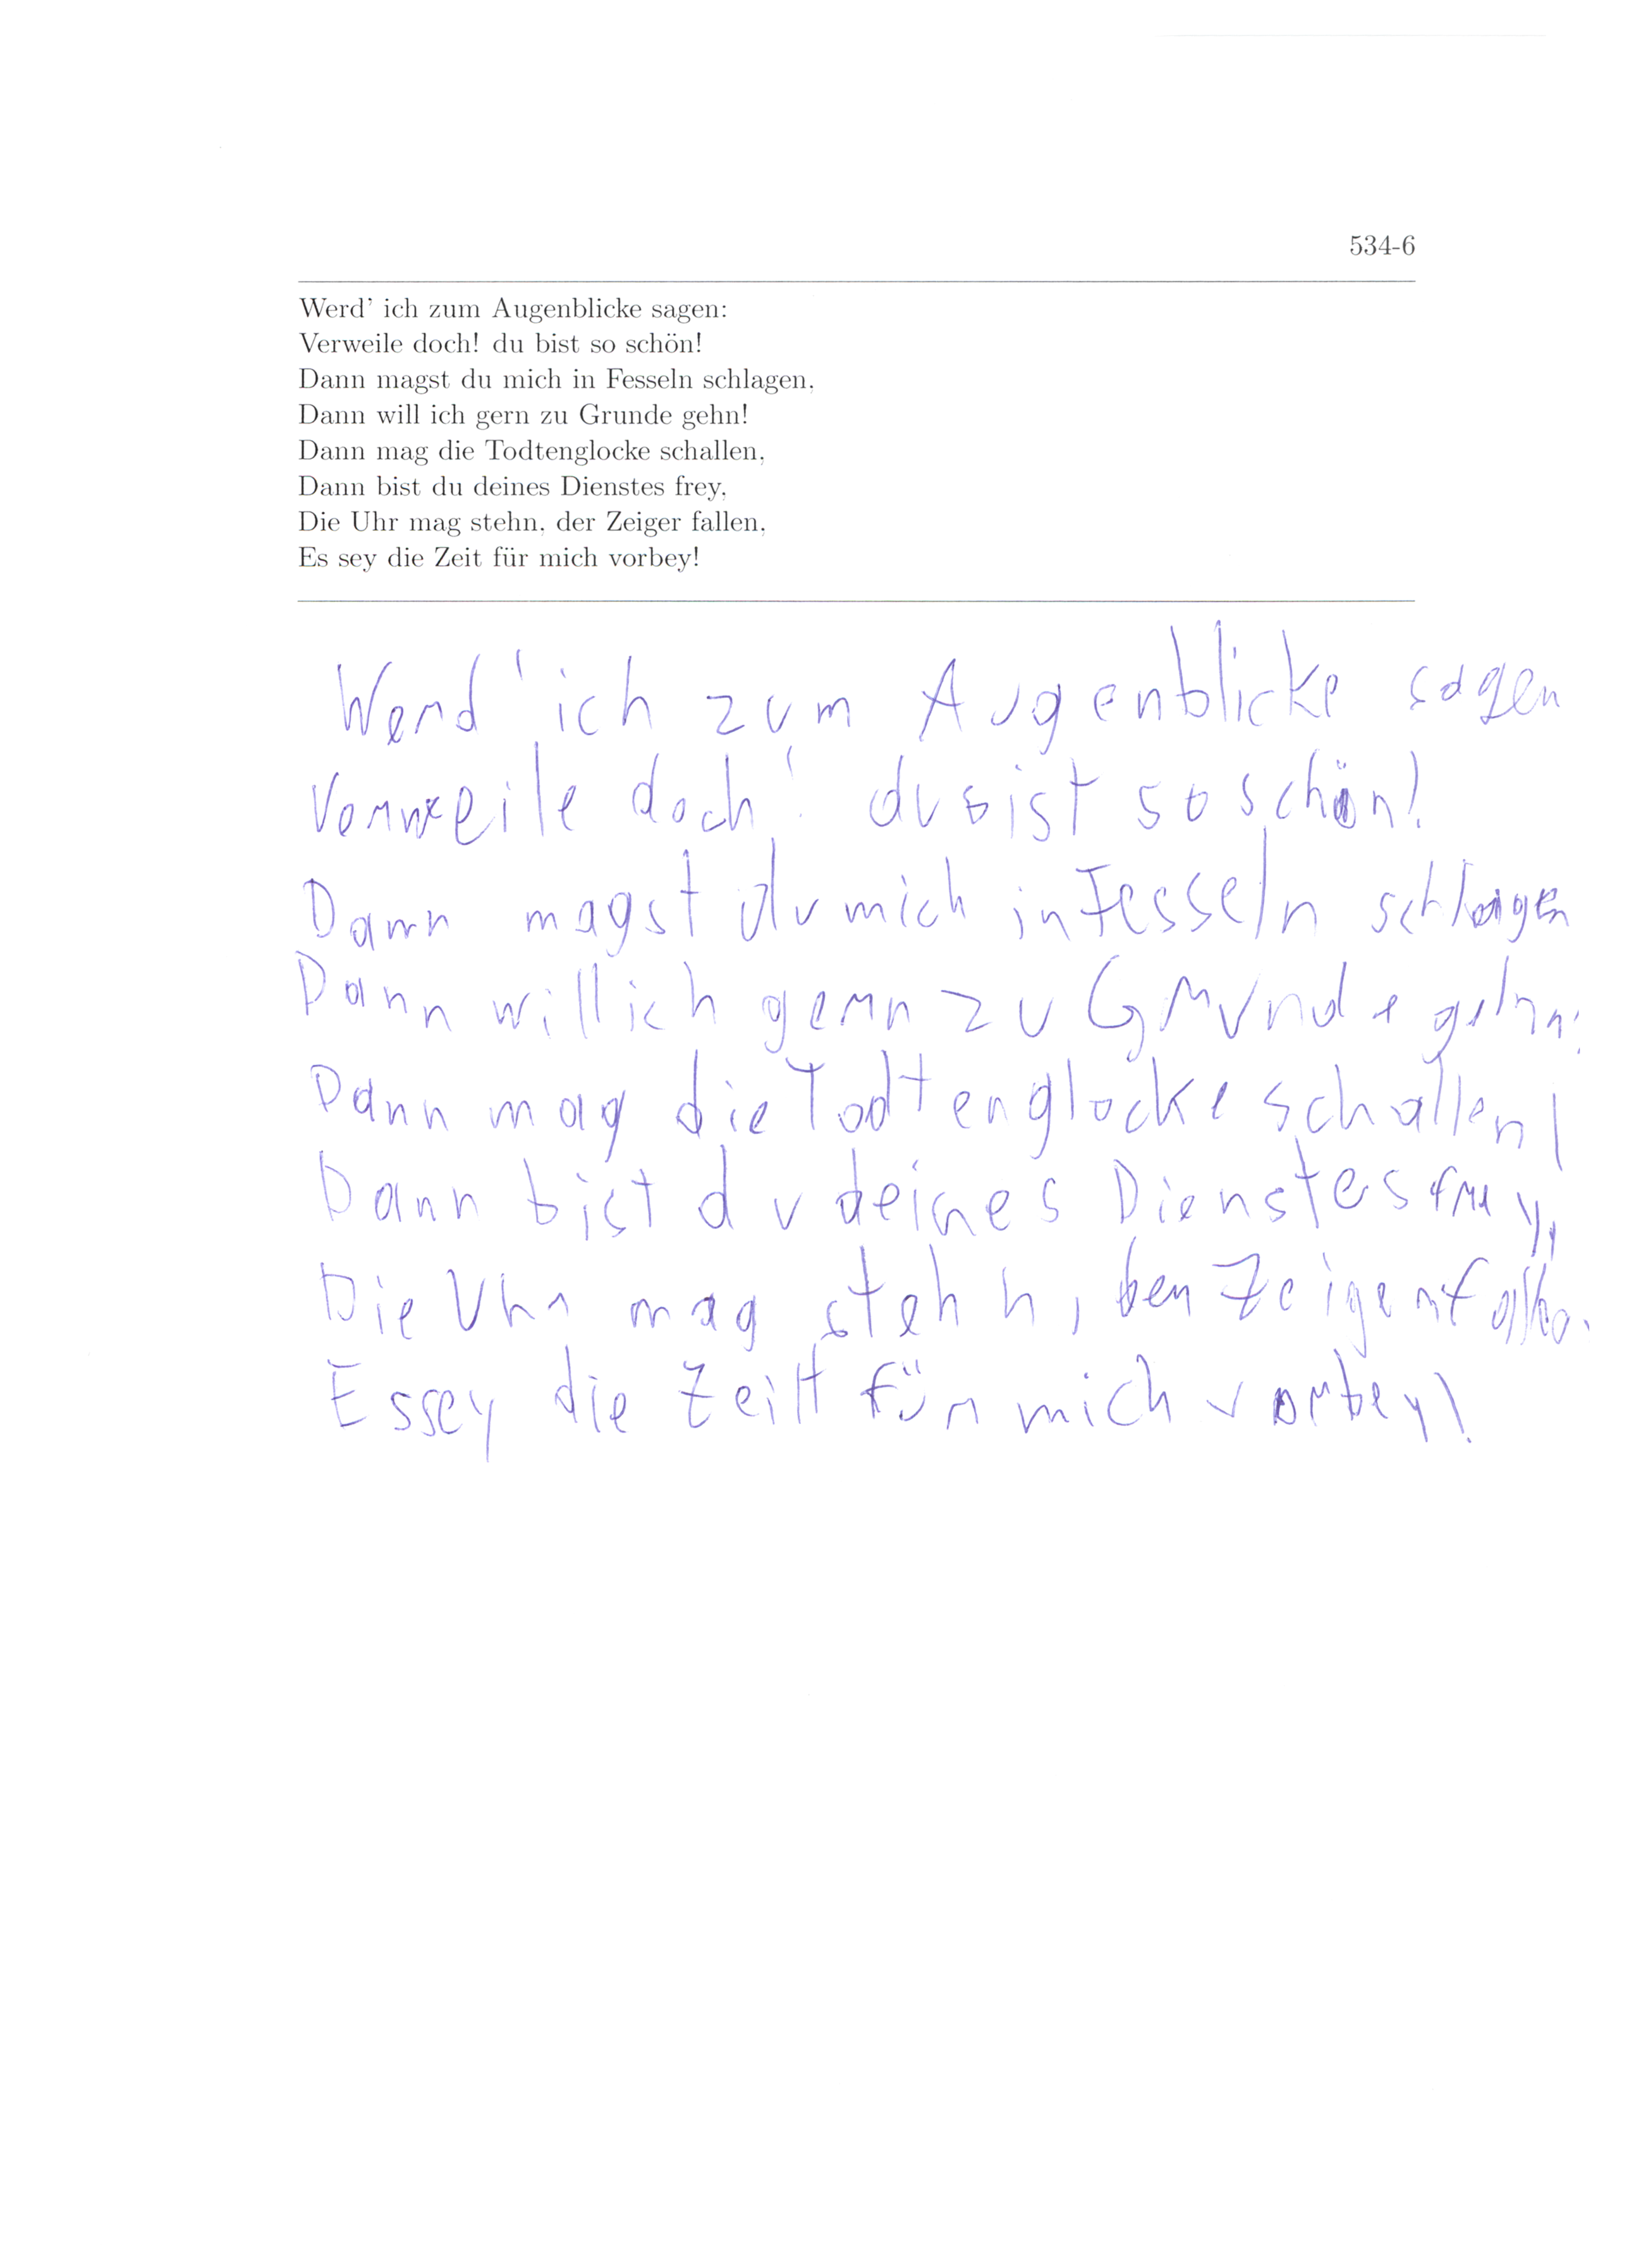 534-6
Werd' ich zum Augenblicke sagen:
Verweile doch! du bist so schön!
Dann magst du mich in Fesseln schlagen,
Dann will ich gern zu Grunde gehn!
Dann mag die Todtenglocke schallen,
Dann bist du deines Dienstes frey,
Die Uhr mag stehn, der Zeiger fallen,
Es sey die Zeit für mich vorbey!
Werd' ich zum Augenblicke sagen
Verweile doch! du bist so schön!
Dann magst du mich in Fesseln schlagen
Dann will ich gern zu Grunde gehn!
Dann mag die Todtenglocke schallen,
Dann bist du deines Dienstes frey,
Die Uhr mag stehn, der Zeiger fallen.
Es sey die Zeit für mich vorbey!